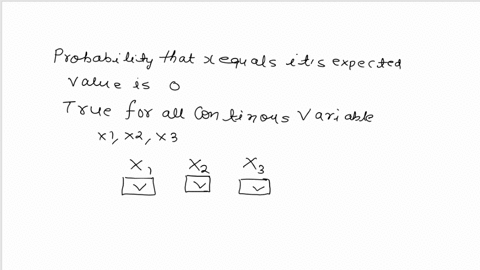 Probability that x equals it's expected
value is 0
True for all Continous Variable
x1, x2, x3
X1 X2 X3